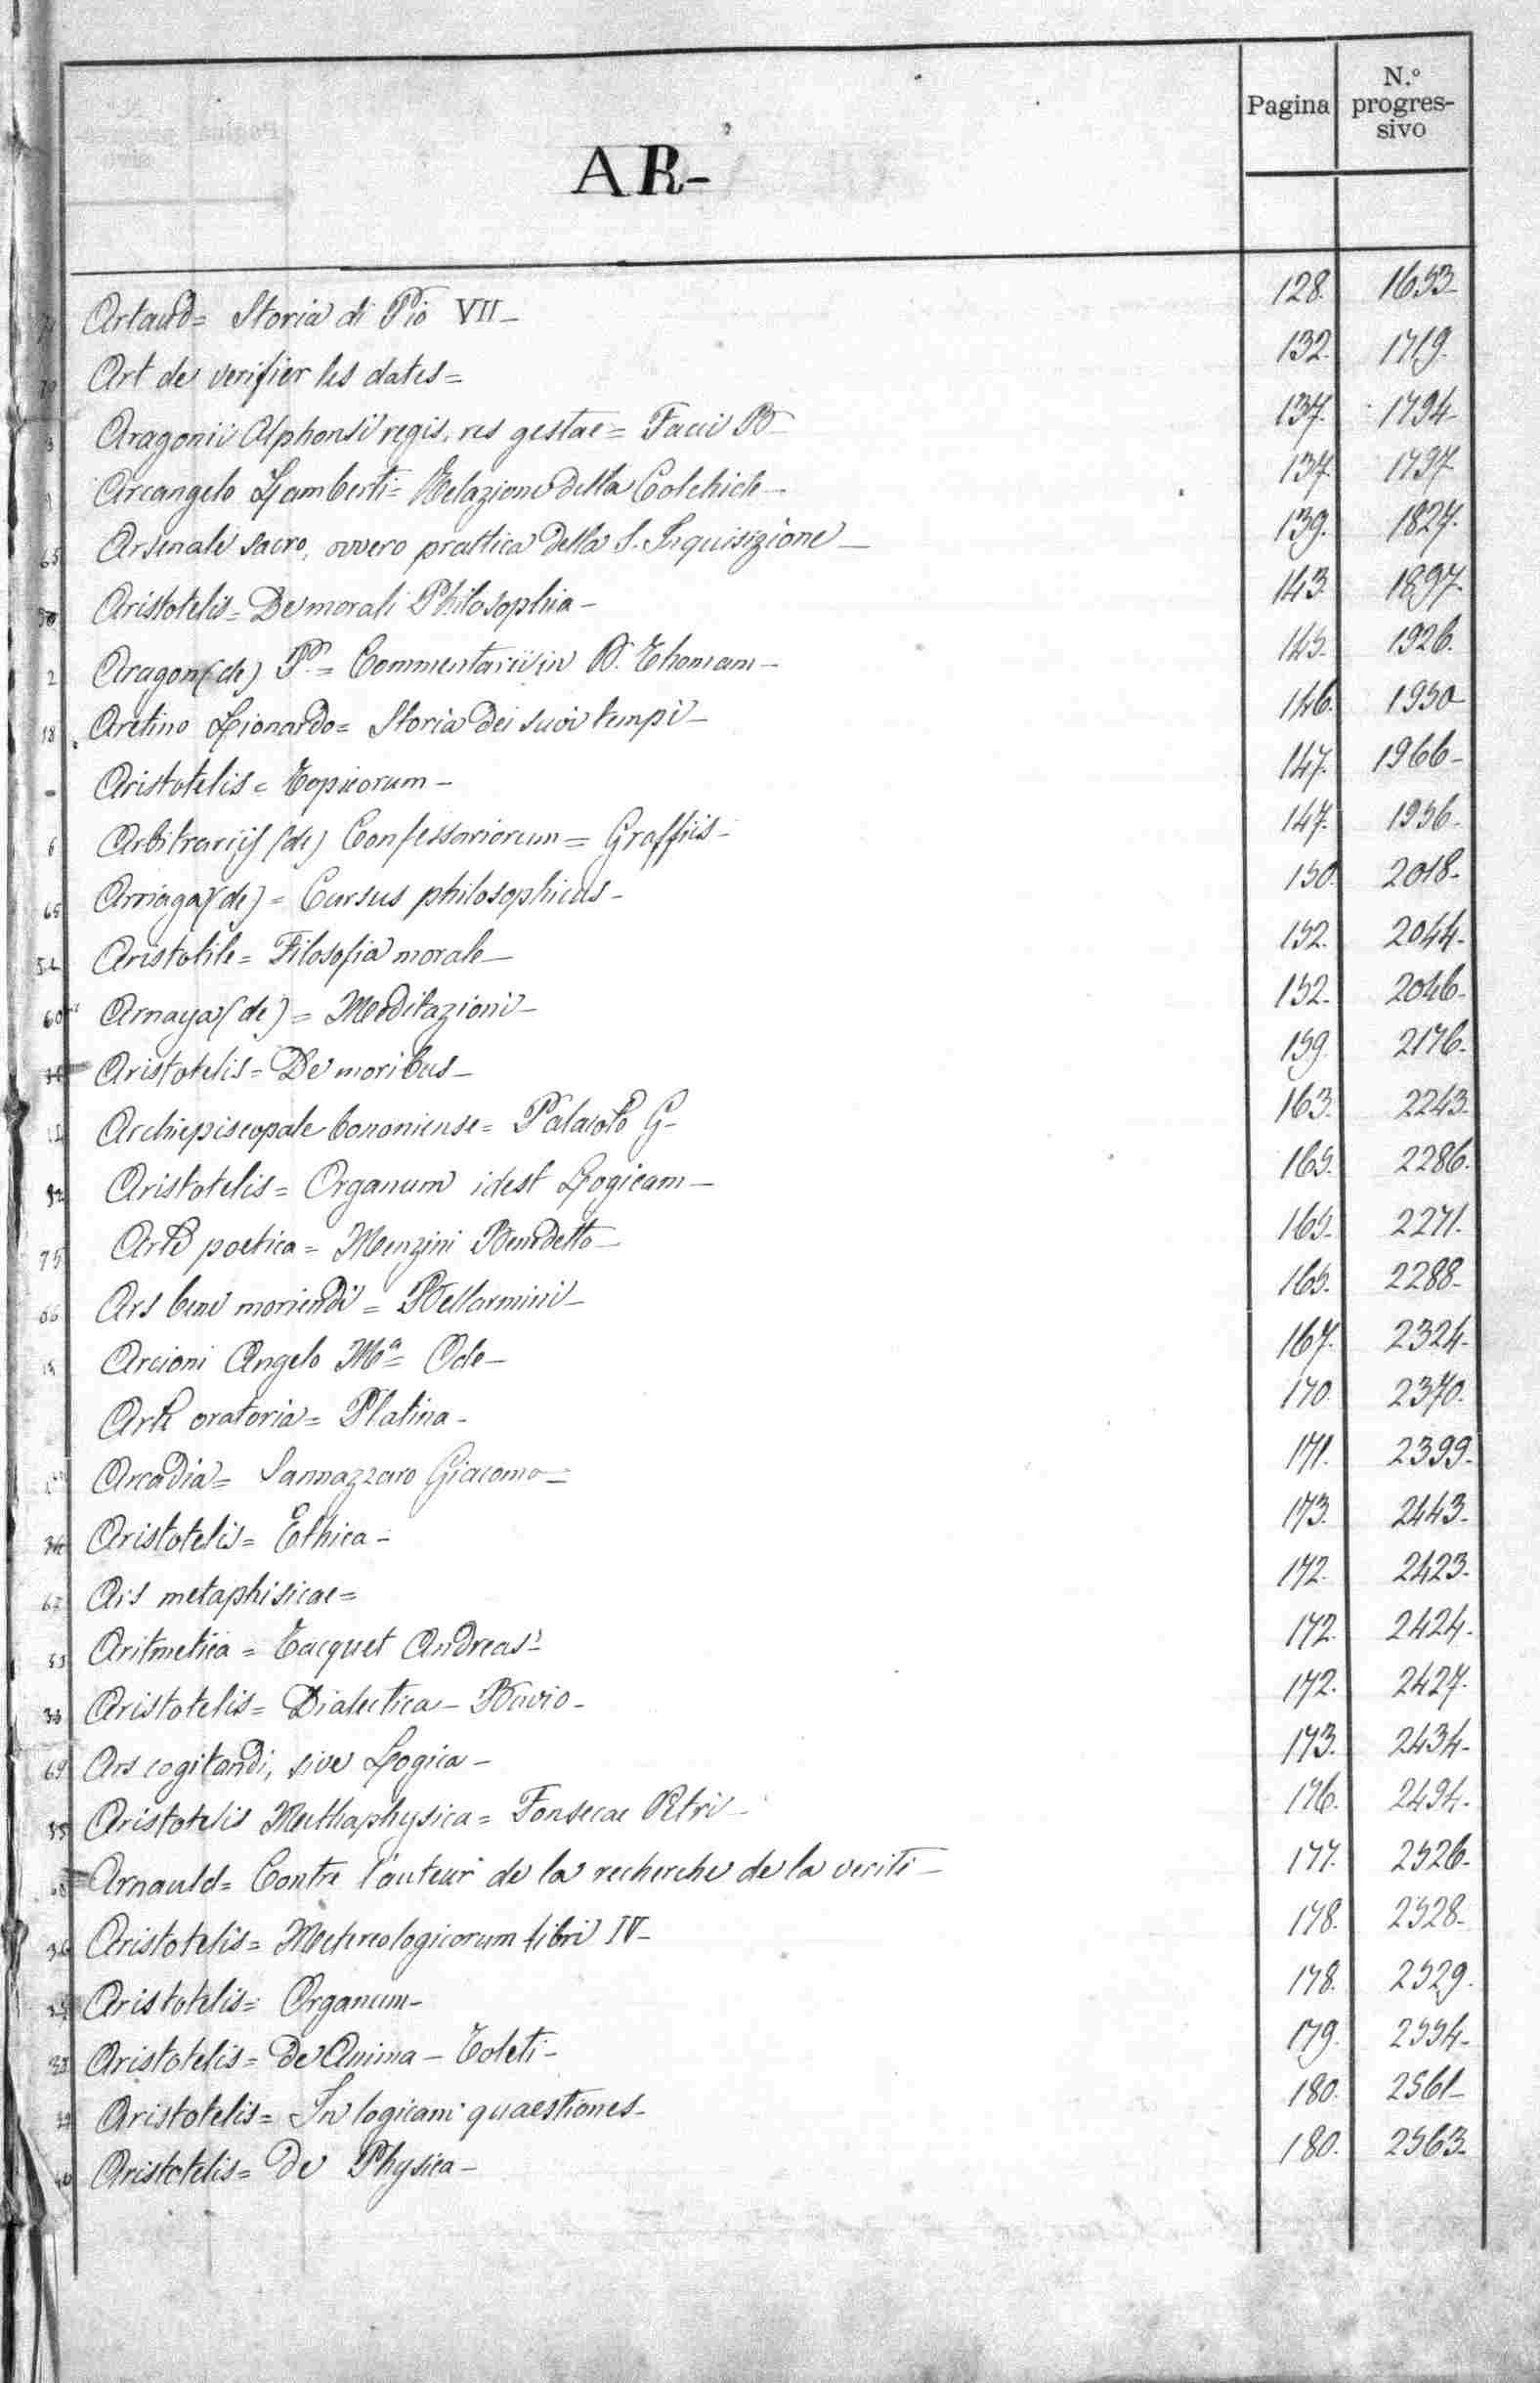 Pagina N.º progres-sivo
AR-
Artaud= Storia di Pio VII- 128. 1653-
Art de verifier les dates= 132. 1719.
Aragonii Alphonsi regis, res gestae= Facii B- 137. 1794-
Arcangelo Lamberti= Relazione della Colchide- 137. 1797
65 Arsenale sacro, ovvero prattica della S. Inquisizione- 139. 1827.
Aristotelis= De morali Philosophia- 143. 1897.
2 Aragon (de) Po.= Commentarii in D. Thomam- 145. 1926.
18 Aretino Lionardo= Storia dei suoi tempi- 146. 1950
- Aristotelis= Topicorum- 147. 1966-
6 Arbitrariis (de) Confessariorum= Graffiis- 147. 1956.
65 Arriaga (de)= Cursus philosophicus- 150. 2018-
Aristotile= Filosofia morale- 152. 2044.
60 Arnaya (de)= Meditazioni- 152. 2046-
Aristotelis= De moribus- 159. 2176.
Archiepiscopale bononiense= Palaeoto G- 163. 2243-
Aristotelis= Organum idest Logicam- 165. 2286.
75 Arte poetica= Menzini Benedetto- 165. 2271.
66 Ars bene moriendi= Bellarmini- 165. 2288-
Arcioni Angelo Mª= Ode- 167. 2324.
Arte oratoria= Platina- 170. 2370.
Arcadia= Sannazzaro Giacomo- 171. 2399.
Aristotelis= Ethica- 173. 2443-
67 Ars metaphisicae= 172. 2423-
Aritmetica= Tacquet Andreas- 172. 2424.
33 Aristotelis= Dialectica- Bavio- 172. 2427.
69 Ars cogitandi, sive Logica- 173. 2434-
35 Aristotelis Methaphysica= Fonsecae Petri- 176. 2494.
Arnauld= Contre l'auteur de la recherche de la verite- 177. 2526-
36 Aristotelis= Metereologicorum libri IV- 178. 2528-
Aristotelis= Organum- 178. 2529.
Aristotelis= De Anima- Toleti- 179. 2554-
Aristotelis= In logicam quaestiones- 180. 2561-
Aristotelis= De Physica- 180. 2563-